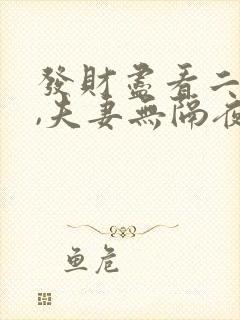 發財盡看二
,夫妻無隔夜
鱼危